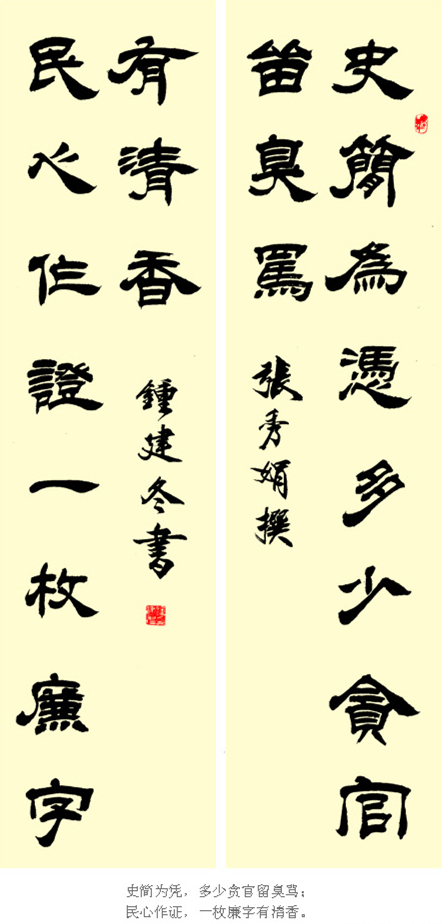 史簡為憑多少貪官
留臭罵
張秀娟撰
民心作證一枚廉字
有清香
鍾建冬書
史简为凭，多少贪官留臭骂；
民心作证，一枚廉字有清香。